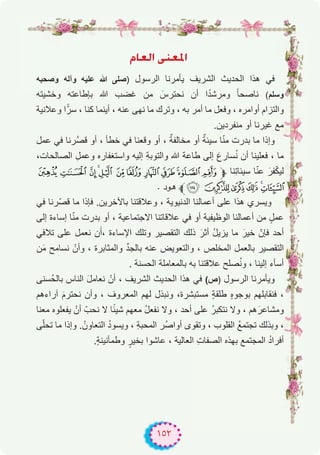 المعنى العام
في هذا الحديث الشريف يأمرنا الرسول (صلى الله عليه وآله وصحبه
وسلم) ناصحاً ومرشدًا أن نحترسَ من غضبِ الله بإطاعته وخشيته
والتزام أوامره ، وفعل ما أمر به ، وترك ما نهى عنه ، أينما كنا ، سرًّا وعلانية
مع غيرنا أو منفردين.
وإذا ما بدرت منّا سيئةٌ أو مخالفةٌ ، أو وقعنا في خطأ ، أو قصَّرنا في عمل
ما ، فعلينا أن نُسارعَ إلى طاعة الله والتوبة إليه واستغفاره وعمل الصالحات،
ليُكفّرَ عنّا سيئاتِنا ﴿ وَأَقِمِ ٱلصَّلَوٰةَ طَرَفَيِ ٱلنَّهَارِ وَزُلَفًا مِّنَ ٱلَّيْلِ إِنَّ ٱلْحَسَنَٰتِ يُذْهِبْنَ
ٱلسَّيِّـَٔاتِ ذَٰلِكَ ذِكْرَىٰ لِلذَّٰكِرِينَ ١١٤ ﴾ هود .
ويسري هذا على أعمالنا الدنيوية ، وعلاقتنا بالآخرين. فإذا ما قصّرنا في
عملٍ من أعمالنا الوظيفية أو في علاقاتنا الاجتماعية ، أو بدرت منّا إساءة إلى
أحد فإنّ خيرَ ما يزيلُ أثرَ ذلك التقصير وتلك الإساءة ،أن نعمل على تلافي
التقصير بالعمل المخلص ، والتعويض عنه بالجدِّ والمثابرة ، وأنْ نسامح مَن
أساء إلينا ، ونُصلح علاقتنا به بالمعاملة الحسنة .
ويأمرنا الرسول (ص) في هذا الحديث الشريف ، أنْ نعاملَ الناس بالحُسنى
، فنقابلهم بوجوهٍ طلقةٍ مستبشرة، ونبذل لهم المعروف ، وأن نحترمَ آراءهم
ومشاعرَهم ، ولا نتكبرُ على أحد ، ولا نفعلُ معهم شيئًا لا نحبّ أنْ يفعلوه معنا
، وبذلك تجتمعُ القلوب ، وتقوى أواصرُ المحبة ، ويسودُ التعاونُ. وإذا ما تحلّى
أفرادُ المجتمع بهذه الصفاتِ العالية ، عاشوا بخيرٍ وطمأنينةٍ.
١٥٢